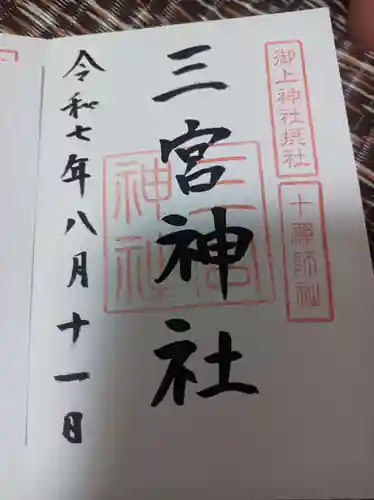 御上神社摂社
十禅師社
三宮神社
三宮
神社
令和七年八月十一日